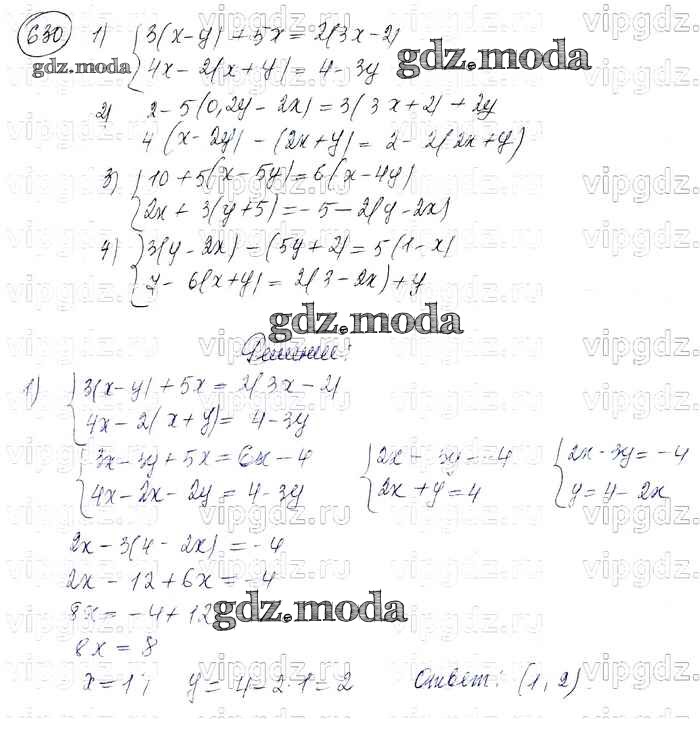 630 1) { 3(x-y) + 5x = 2(3x-2)
4x - 2(x+y) = 4-3y
gdz.moda
gdz.moda
2) 2-5(0,2y-2x) = 3(3x+2) + 2y
4(x-2y) - (2x+y) = 2-2(2x+y)
3) { 10+5(x-5y) = 6(x-4y)
2x + 3(y+5) = -5-2(y-2x)
4) { 3(y-2x) - (5y+2) = 5(1-x)
7-6(x+y) = 2(3-2x)+y
gdz.moda
Решение:
1) { 3(x-y) + 5x = 2(3x-2)
4x-2(x+y) = 4-3y
{ 3x-3y+5x = 6x-4 { 2x-3y=-4 { 2x-3y=-4
4x-2x-2y = 4-3y 2x+y=4 y=4-2x
2x-3(4-2x) = -4
2x-12+6x = -4
8x = -4+12
gdz.moda
8x = 8
x = 1; y = 4-2·1 = 2 Ответ: (1, 2)
vipgdz.ru